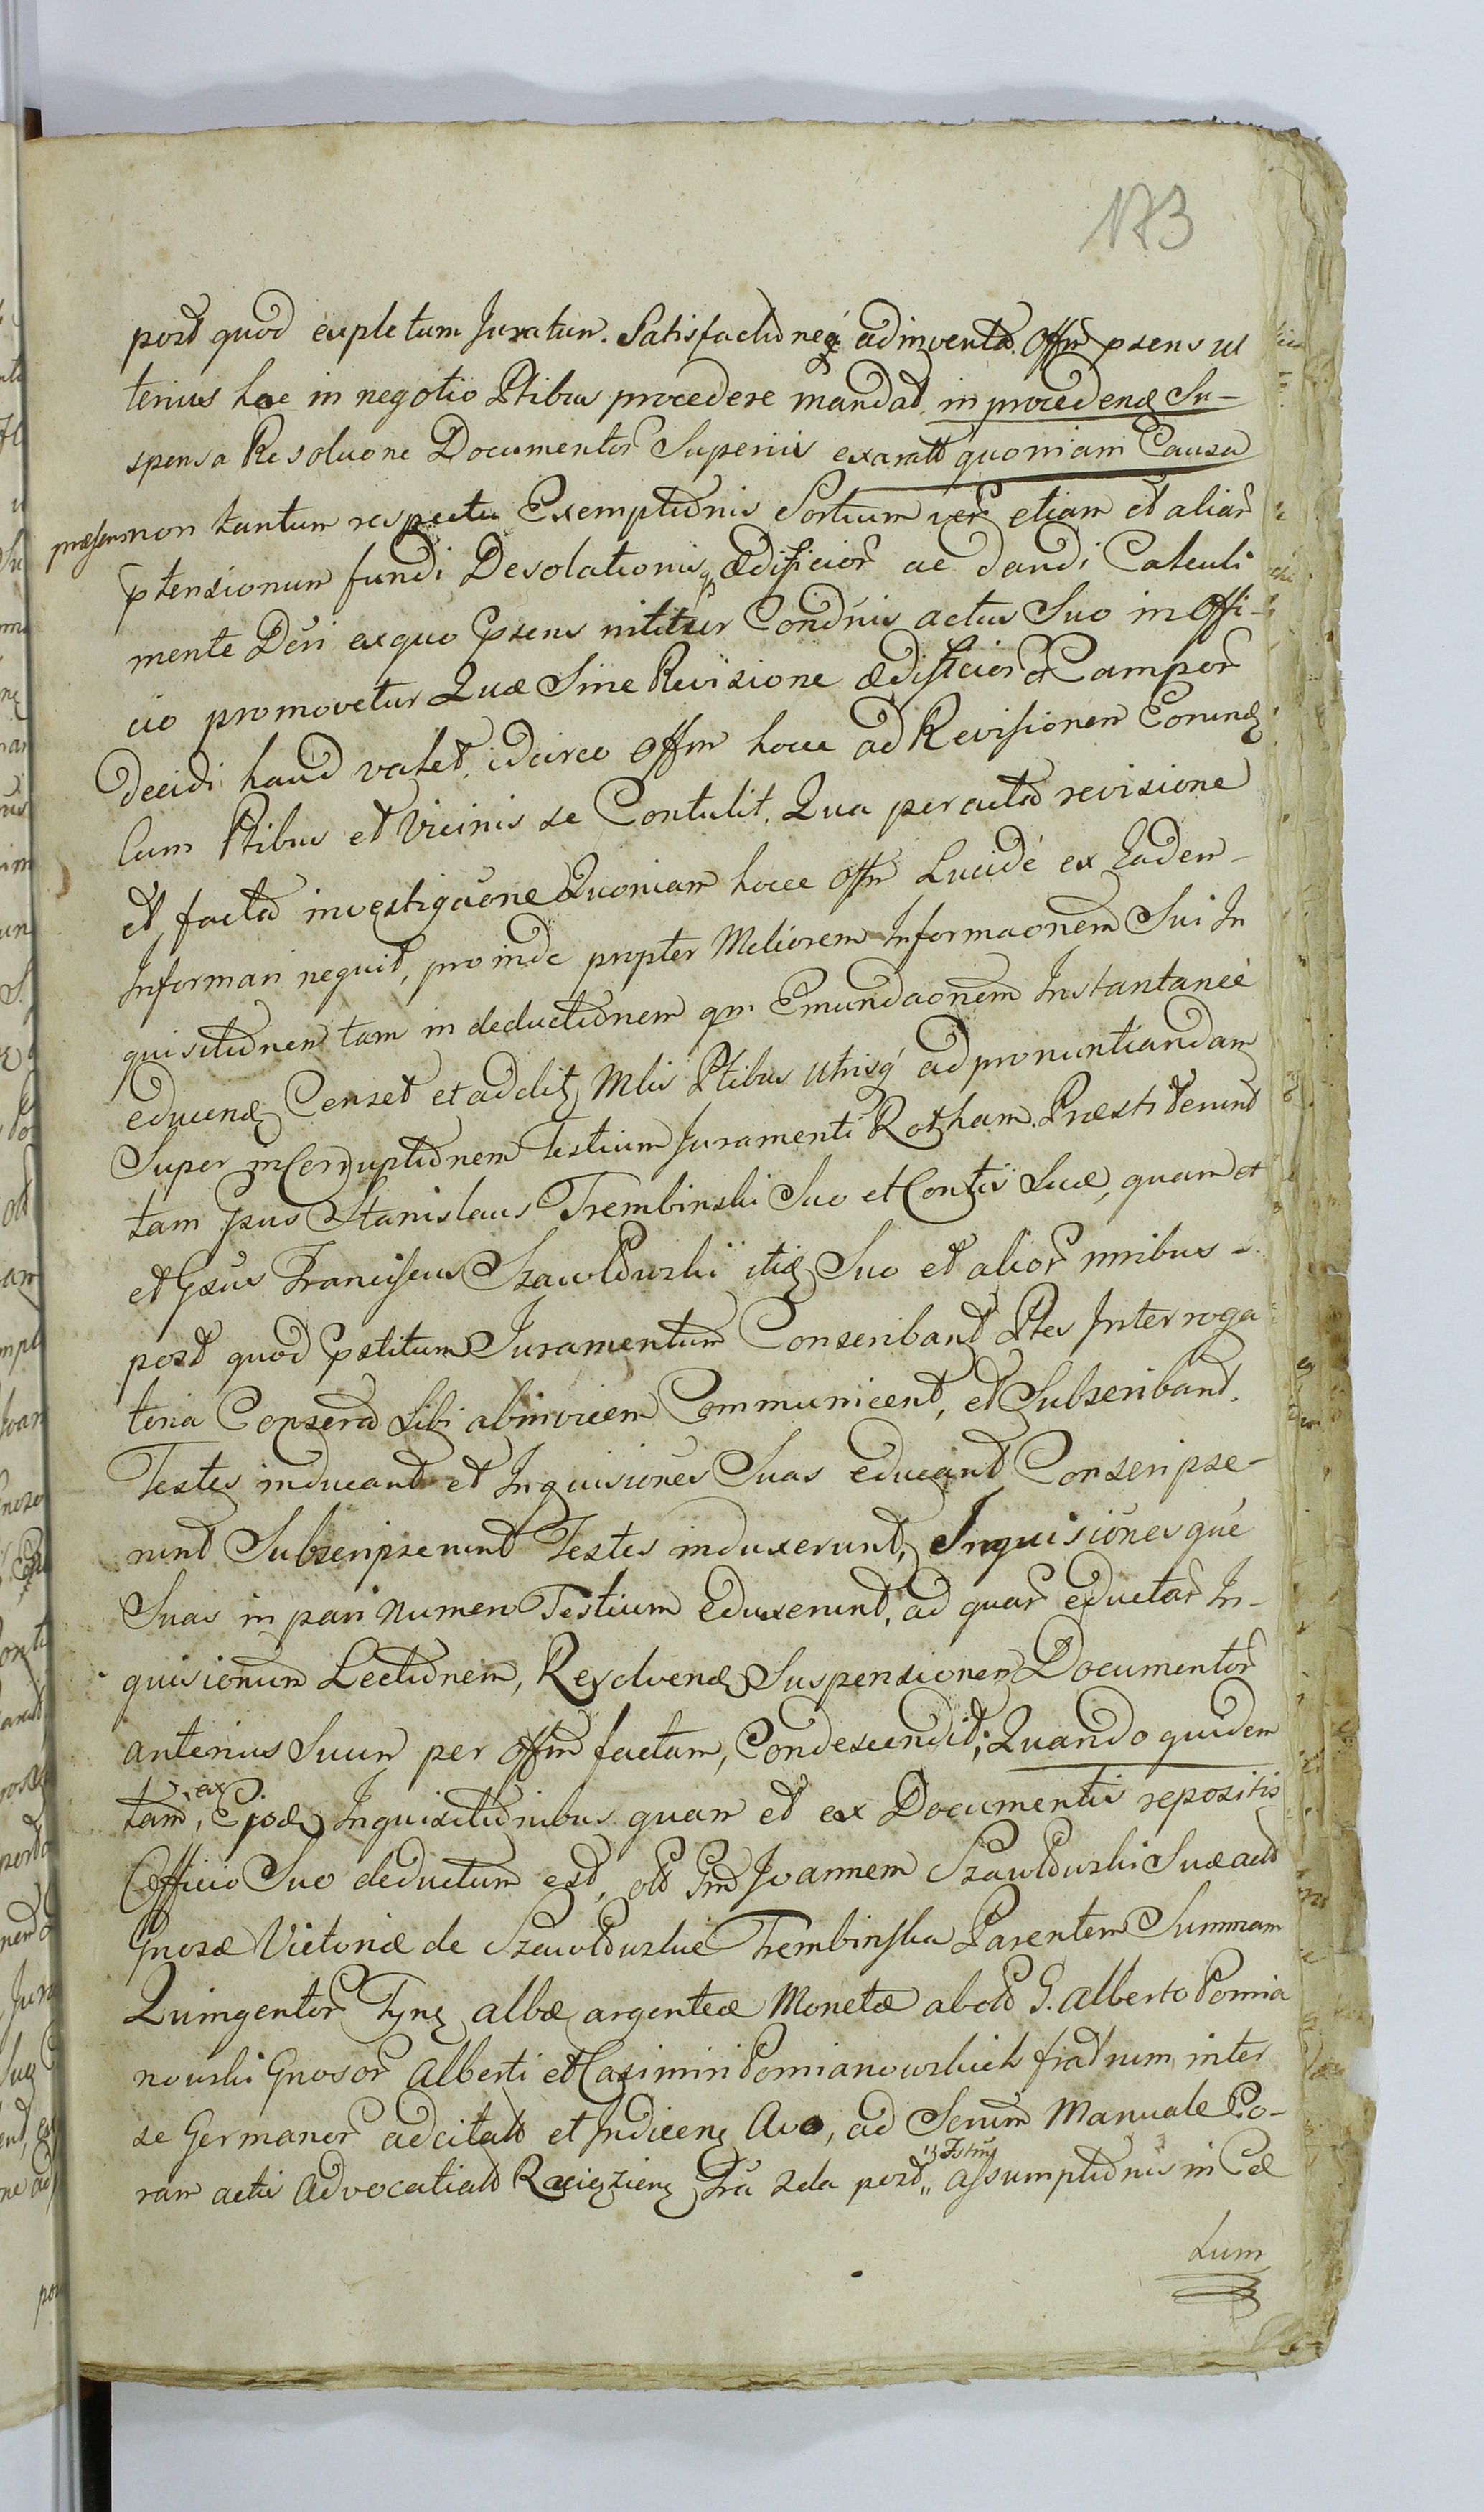 173
post quod expletum Juratum. Satisfactionéq adinventa. Offm psens ul
terius hoc in negotio Ptibus procedere mandat, in procedend Su-
spensa Resoluone Documentor Superius exaratt quoniam Causa
præsens non tantum respectu Exemptionis Sortium ver etiam et aliar
ptensionum fundi Desolationis qs Ædificior ac dandi Calculi
mente Dčri ex quo psens nititur Condnis actus Suo in Offi-
cio promovetur Quæ Sine Revisione ædificior & Campor
decidi haud valet, idcirco Offm hocce ad Revisionem Eorund
Cum Ptibus et Vicinis se Contulit. Qua peracta revisione
et facta investigaone Quoniam hocce Offm Lucidé ex Eadem -
Informari nequit, proinde propter Meliorem Informaonem Sui In
quisitionem tam in deductionem qm Emundaonem Instantaneé
educend Censet et addit Mlis Ptibus utrisq ad pronuntiandam
Super inCorruptionem Testium Juramenti Rotham. Præstiterunt
tam Gsus Stanislaus Trembinski Suo et Contis Suæ, quam et
et Gsus Franciscus Szawłowski itid Suo et alior nnibus -
post quod pstitum Juramentum Conscribant Ptes Interroga
toria Conscrta Sibi abinvicem Communicent, et Subscribant.
Testes inducant et Inquisiones Suas educant Conscripse-
runt Subscripserunt Testes induxerunt, Inquisionesque
Suas in pari numero Testium Eduxerunt, ad quar eductar In-
quisionum Lectionem, Resolvend Suspensionem Documentor
anterius Suum per Offm factam, Condescendit; Quando quidem
tam, ex Ejsd Inquisitionibus quam et ex Documentis repositis
Officio Suo deductum est, olt Gm Joannem Szawłowski Suæ actt
Gnosæ Victoriæ de Szawłowskie Trembinska Parentem Summam
Quingentor Tynf albæ argenteæ Monetæ ab olt G. Alberto Pomia
nowski Gnosor Alberti et Casimiri Pomianowskich fratrum inter
se Germanor adcitatt et Indicen Avo, ad Scrum Manuale Co-
ram actis Advocatialt Raciązien fra 2da post „ Fstum assumptionis in Cæ
lum